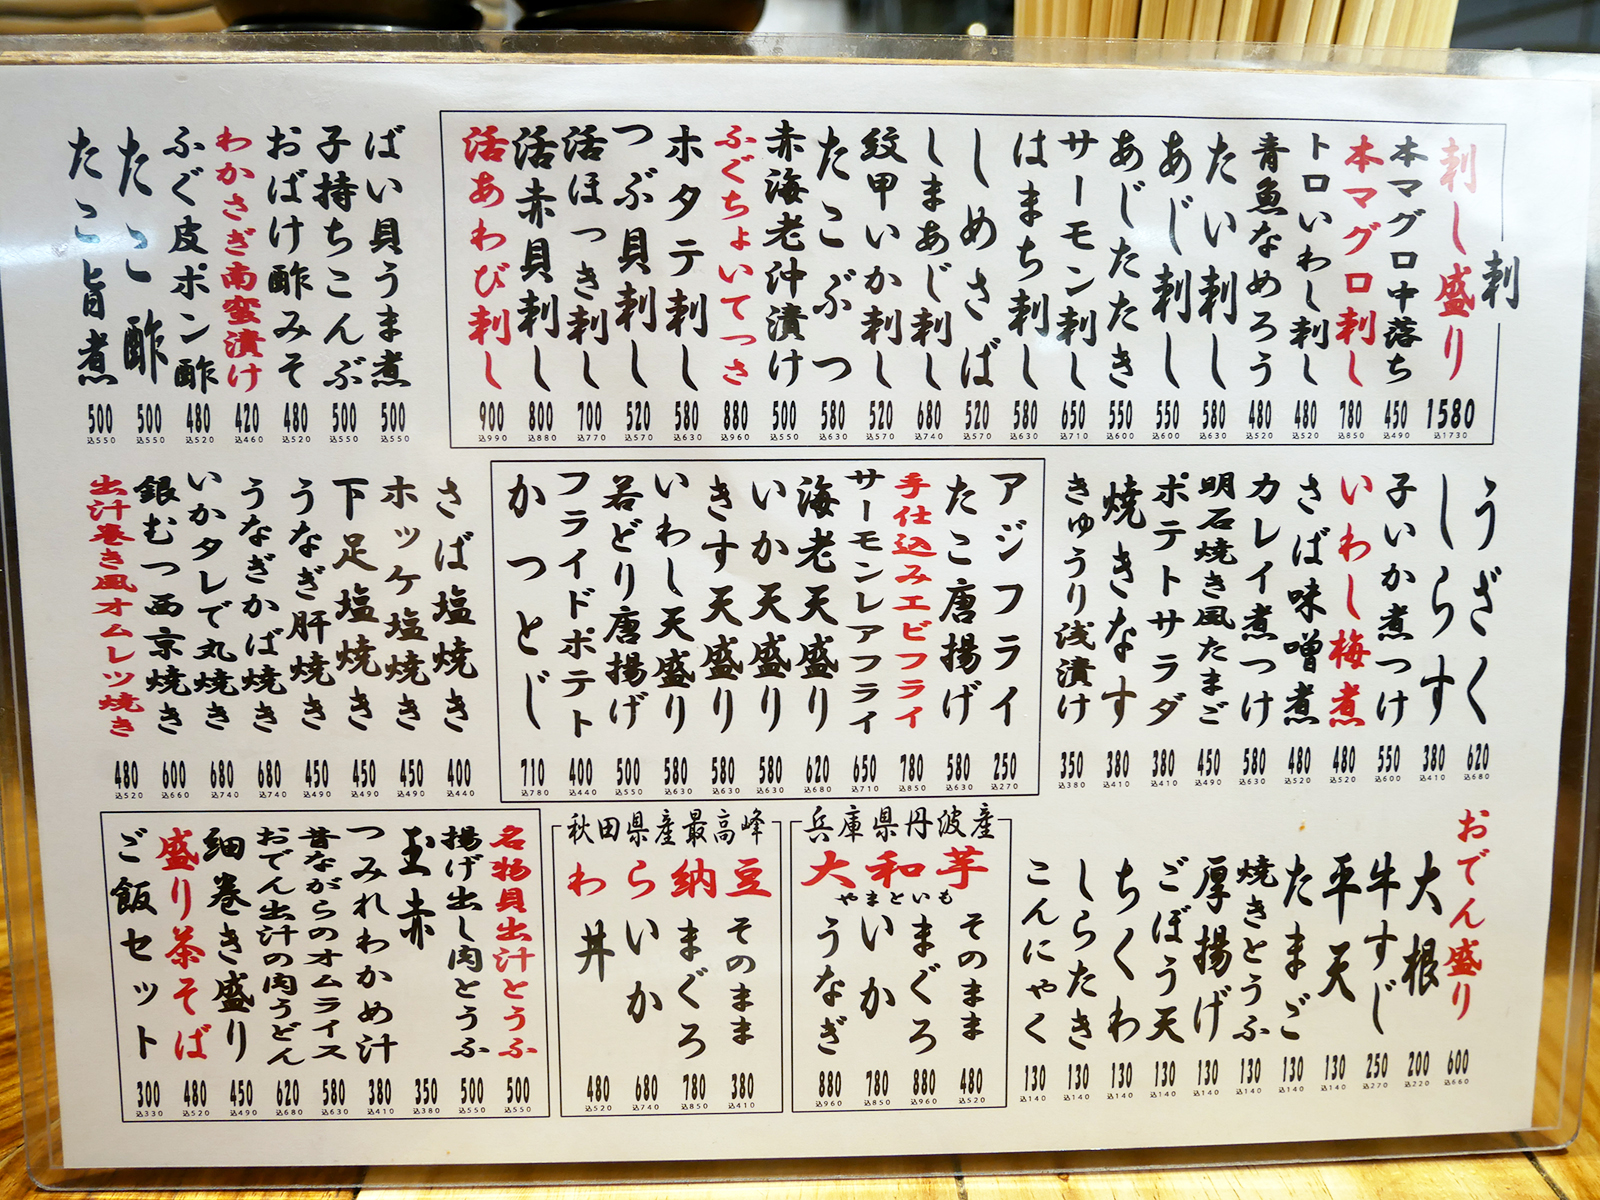 刺
刺し盛り 1580 込1730
本マグロ中落ち 450 込490
本マグロ刺し 780 込850
トロいわし刺し 480 込520
青魚なめろう 480 込520
たい刺し 580 込630
あじ刺し 550 込600
あじたたき 550 込600
サーモン刺し 650 込710
はまち刺し 580 込630
しめさば 520 込570
しまあじ刺し 680 込740
紋甲いか刺し 520 込570
たこぶつ 580 込630
赤海老沖漬け 500 込550
ふぐちょいてっさ 880 込960
ホタテ刺し 580 込630
つぶ貝刺し 520 込570
活ほっき刺し 700 込770
活赤貝刺し 800 込880
活あわび刺し 900 込990
ばい貝うま煮 500 込550
子持ちこんぶ 500 込550
おばけ酢みそ 480 込520
わかさぎ南蛮漬け 420 込460
ふぐ皮ポン酢 480 込520
たこ酢 500 込550
たこ旨煮 500 込550
うざく 620 込680
しらす 380 込410
子いか煮つけ 550 込600
いわし梅煮 480 込520
さば味噌煮 480 込520
カレイ煮つけ 580 込630
明石焼き風たまご 450 込490
ポテトサラダ 380 込410
焼きなす 380 込410
きゅうり浅漬け 350 込380
アジフライ 250 込270
たこ唐揚げ 580 込630
手仕込みエビフライ 780 込850
サーモンレアフライ 650 込710
海老天盛り 620 込680
いか天盛り 580 込630
きす天盛り 580 込630
いわし天盛り 580 込630
若どり唐揚げ 500 込550
フライドポテト 400 込440
かつとじ 710 込780
さば塩焼き 400 込440
ホッケ塩焼き 450 込490
下足塩焼き 450 込490
うなぎ肝焼き 450 込490
うなぎかば焼き 680 込740
いかタレで丸焼き 680 込740
銀むつ西京焼き 600 込660
出汁巻き風オムレツ焼き 480 込520
おでん盛り 600 込660
大根 200 込220
牛すじ 250 込270
平天 130 込140
たまご 130 込140
焼きとうふ 130 込140
厚揚げ 130 込140
ごぼう天 130 込140
ちくわ 130 込140
しらたき 130 込140
こんにゃく 130 込140
兵庫県丹波産
大和芋
やまといも
そのまま 480 込520
まぐろ 880 込960
いか 780 込850
うなぎ 880 込960
秋田県産最高峰
わら納豆
そのまま 380 込410
まぐろ 780 込850
いか 680 込740
丼 480 込520
名物貝出汁とうふ 500 込550
揚げ出し肉とうふ 500 込550
玉赤 350 込380
つみれわかめ汁 380 込410
昔ながらのオムライス 580 込630
おでん出汁の肉うどん 620 込680
細巻き盛り 450 込490
盛り茶そば 480 込520
ご飯セット 300 込330